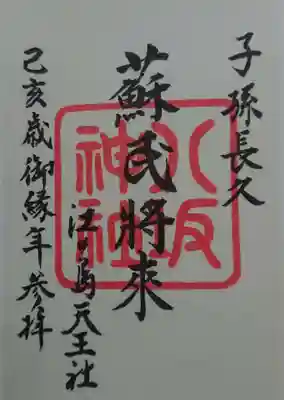 子孫長久
蘇民將來
江ノ島天王社
己亥歳御縁年参拝
八坂
神社